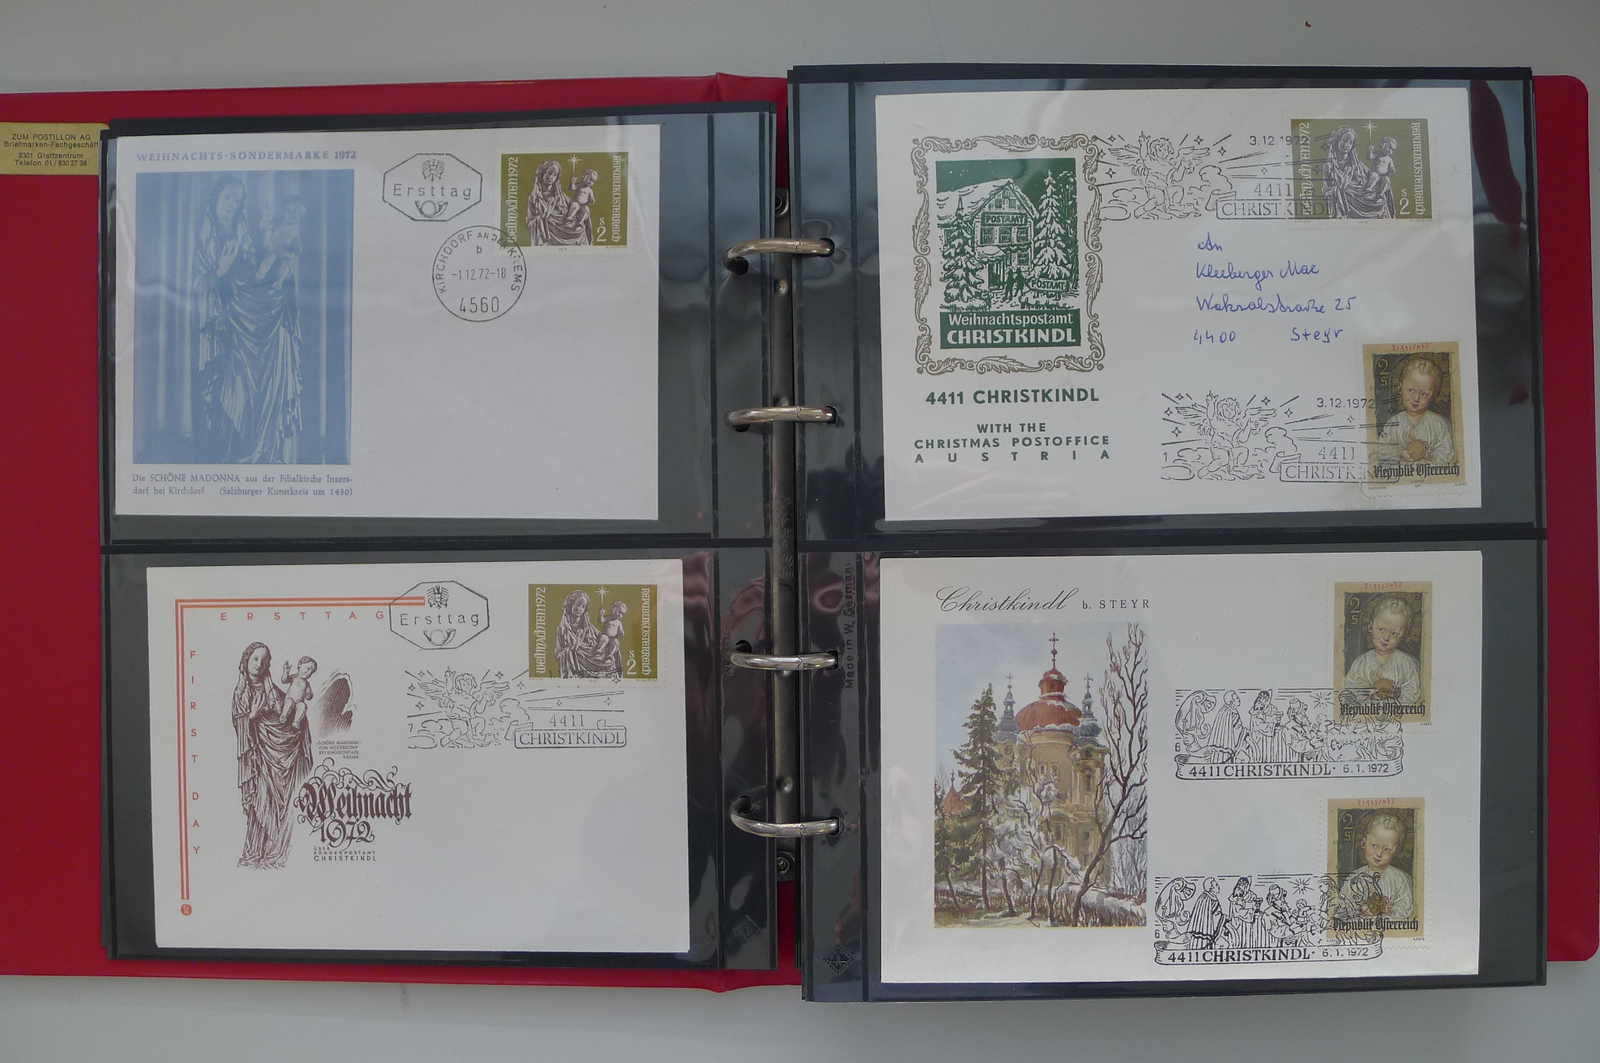 ZUM POSTILLON AG
Briefmarken-Fachgeschäft
8301 Glattzentrum
Telefon 01/830 27 38
WEIHNACHTS-SONDERMARKE 1972
Ersttag
WEIHNACHTEN 1972
REPUBLIK ÖSTERREICH
S
2
KIRCHDORF AN DER KREMS
b
-1.12.72-18
4560
Die SCHÖNE MADONNA aus der Filialkirche Inzers-
dorf bei Kirchdorf (Salzburger Kunstkreis um 1430)
ERSTTAG
FIRST DAY
Ersttag
WEIHNACHTEN 1972
REPUBLIK ÖSTERREICH
S
2
7
4411
CHRISTKINDL
Weihnacht
1972
ÜBER
SONDERPOSTAMT
CHRISTKINDL
POSTAMT
POSTAMT
Weihnachtspostamt
CHRISTKINDL
4411 CHRISTKINDL
WITH THE
CHRISTMAS POSTOFFICE
AUSTRIA
3.12.1972
1
4411
CHRISTKINDL
REPUBLIK ÖSTERREICH
S
2
An
Kleeberger Max
Straße 25
4400 Steyr
3.12.1972
1
4411
CHRISTKINDL
2
S
Republik Österreich
Made in W. Germany
Christkindl b. STEYR
2
S
Republik Österreich
6
4411 CHRISTKINDL · 6.1.1972
2
S
Republik Österreich
6
4411 CHRISTKINDL · 6.1.1972